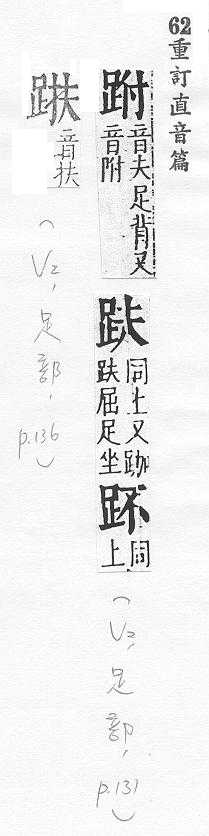 62重訂直音篇
跗 音夫足背又
音附
趺 同上又跏
趺屈足坐
同
上
(V2, 足部, p.131)
音扶
(V2, 足部, p.136)